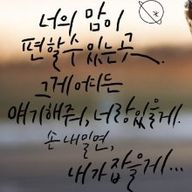 너의 맘이
편할 수 있는 곳.
그게 어디든
얘기해줘, 너랑 있을게.
손 내밀면,
내가 잡을게...